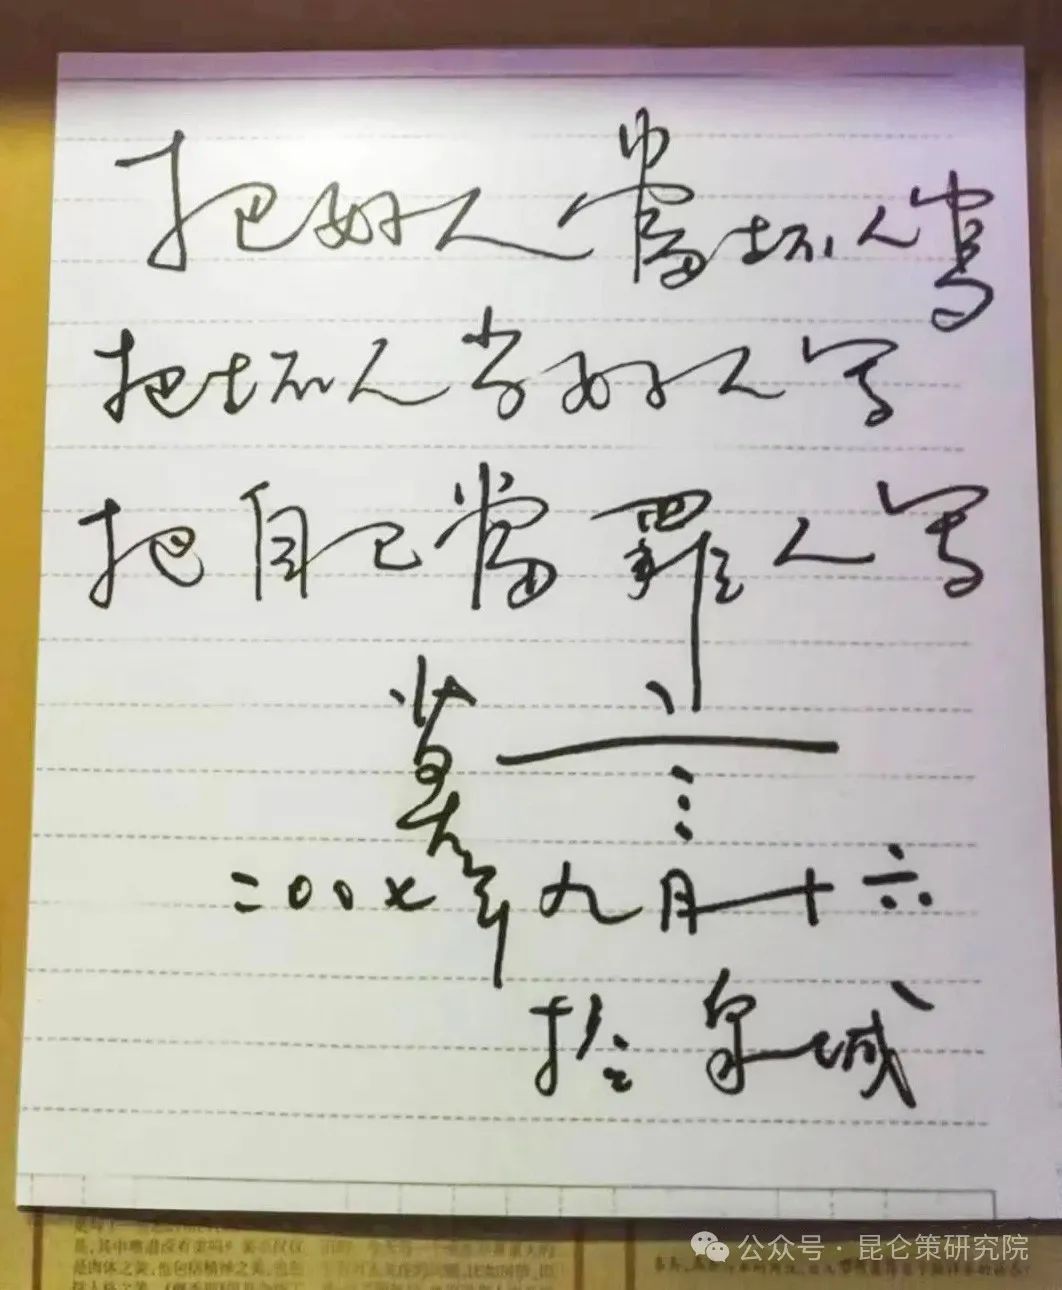 把好人當坏人寫
把坏人当好人写
把自己當罪人写
莫言
二〇〇七年九月十六
於泉城
公众号·昆仑策研究院